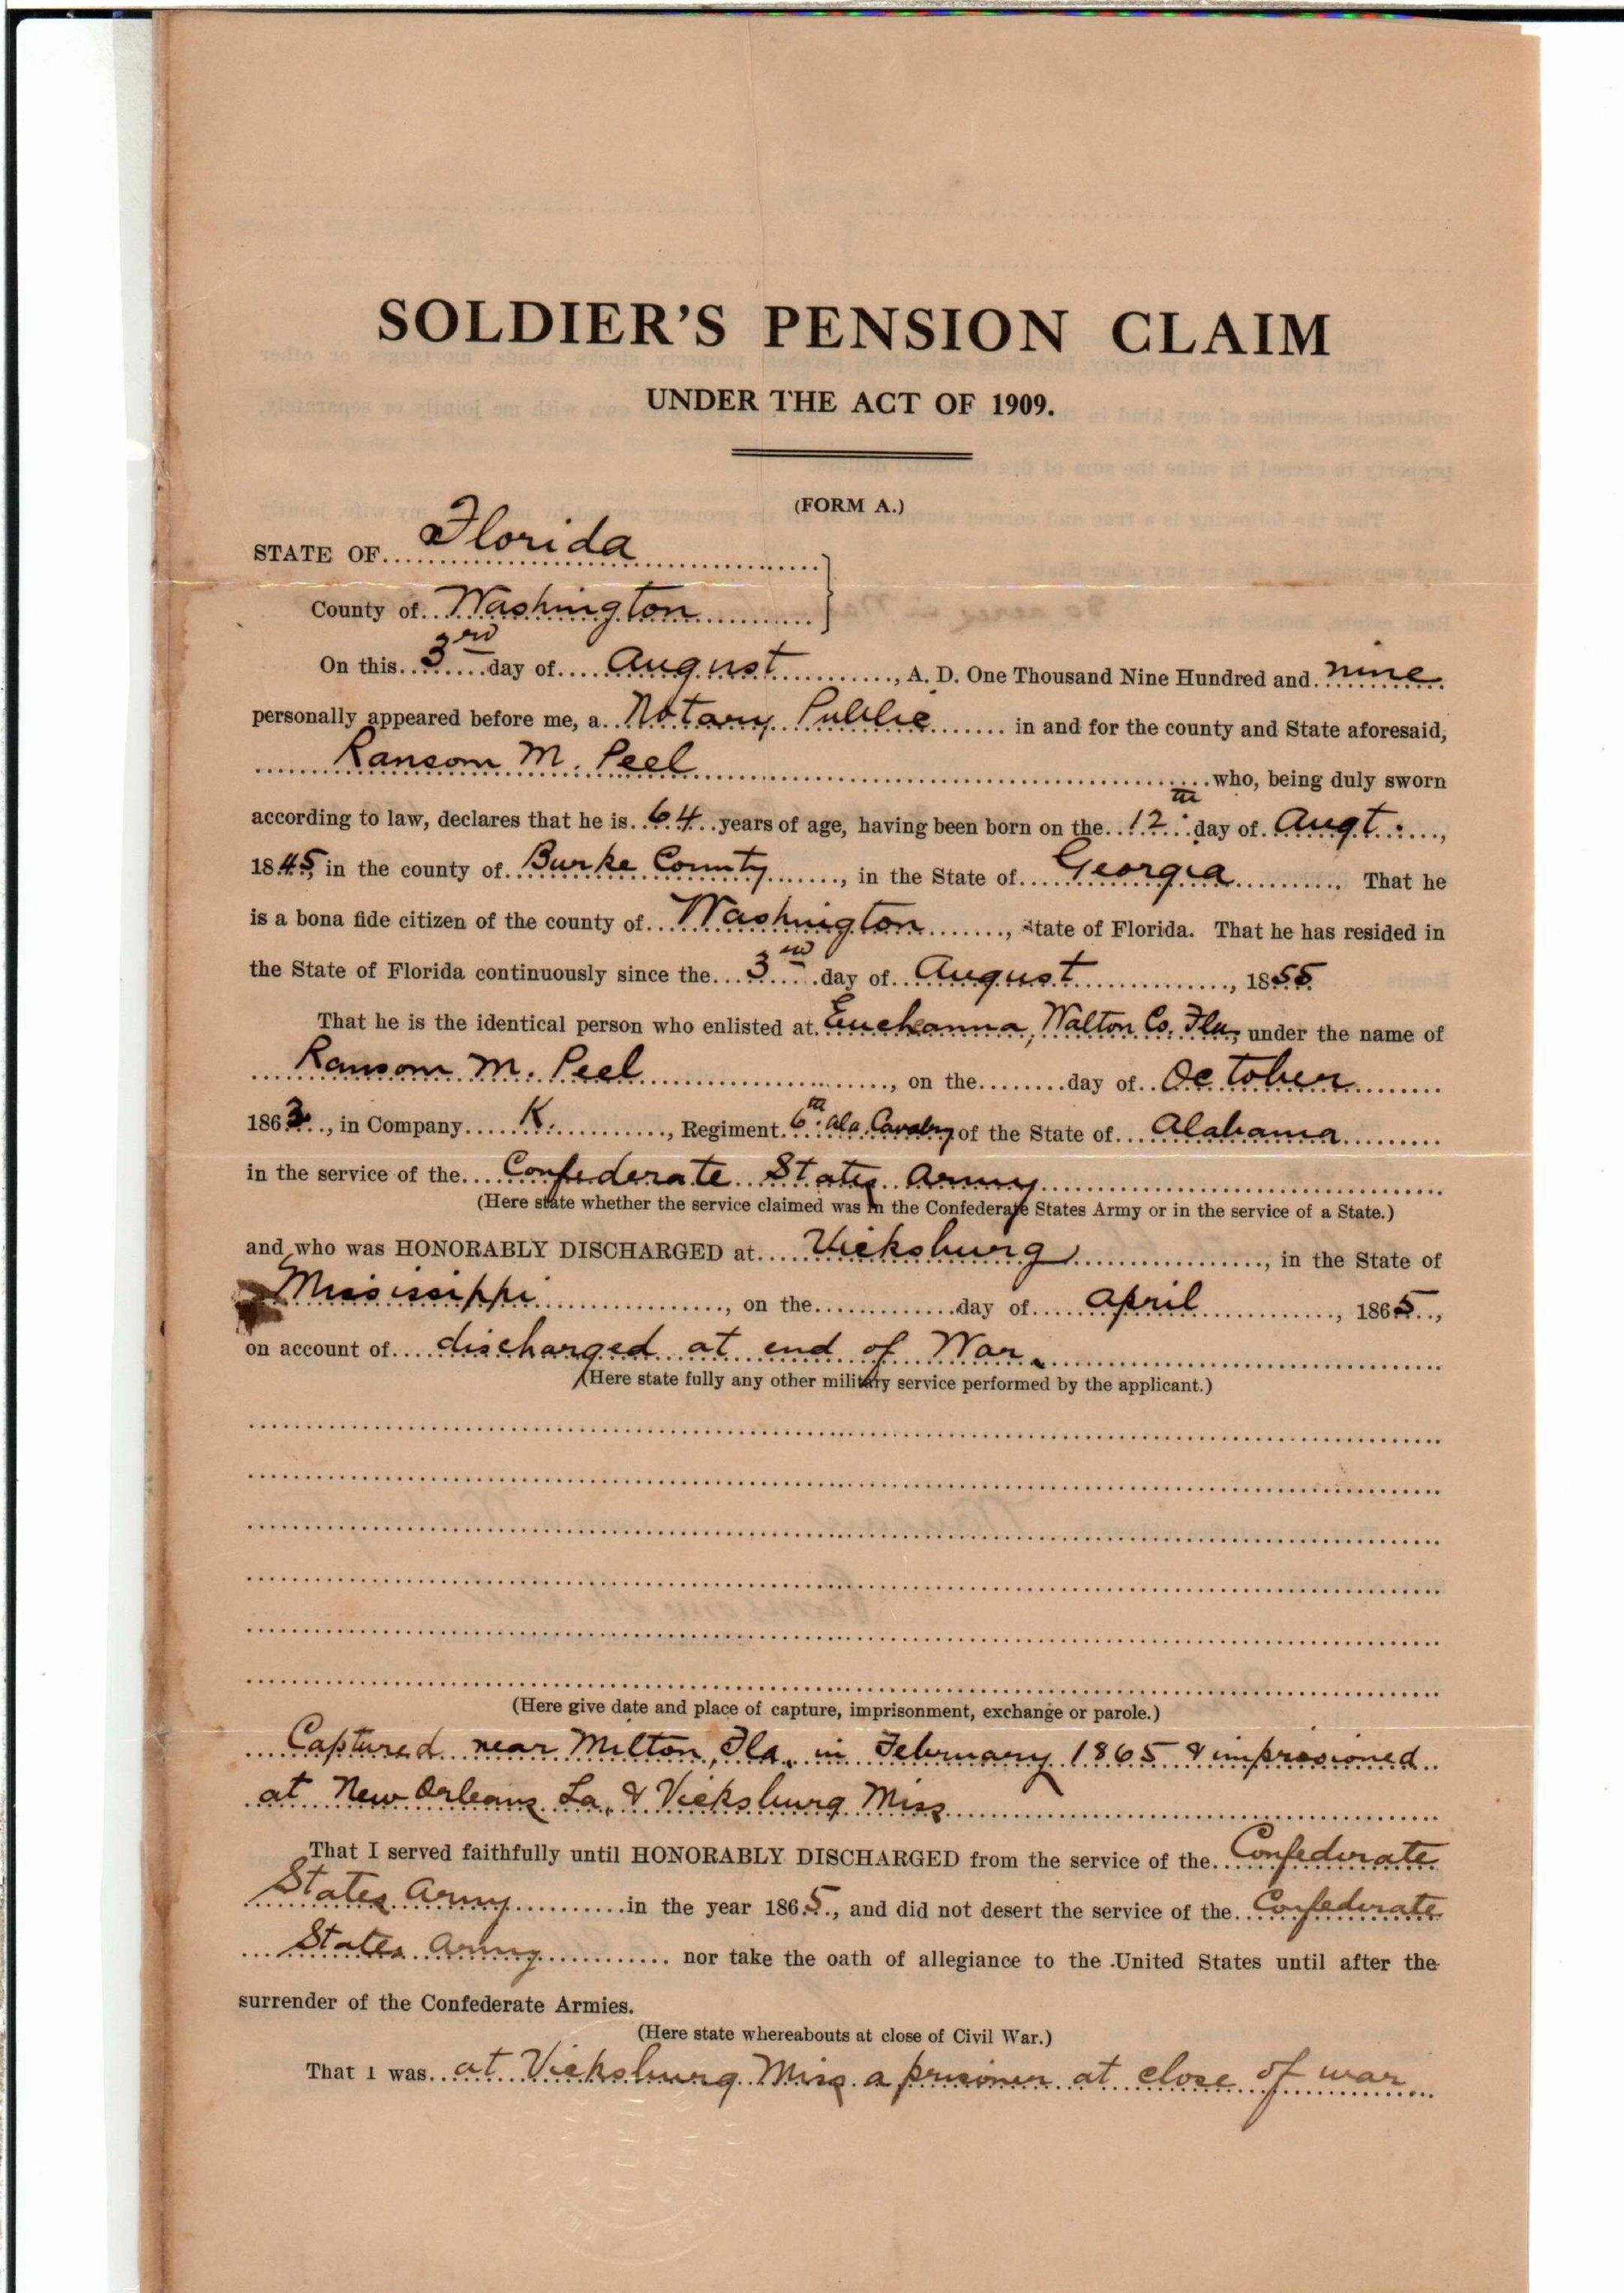 SOLDIER'S PENSION CLAIM
UNDER THE ACT OF 1909.
(FORM A.)
STATE OF Florida
County of Washington
On this 3rd day of August, A. D. One Thousand Nine Hundred and nine
personally appeared before me, a Notary Public in and for the county and State aforesaid,
Ransom M. Peel who, being duly sworn
according to law, declares that he is 64 years of age, having been born on the 12th day of Augt.,
1845, in the county of Burke County, in the State of Georgia. That he
is a bona fide citizen of the county of Washington, State of Florida. That he has resided in
the State of Florida continuously since the 3rd day of August, 1855
That he is the identical person who enlisted at Eucheanna, Walton Co. Fla, under the name of
Ransom M. Peel, on the day of October
1863, in Company K., Regiment 6th Ala. Cavalry of the State of Alabama
in the service of the Confederate States Army
(Here state whether the service claimed was in the Confederate States Army or in the service of a State.)
and who was HONORABLY DISCHARGED at Vicksburg, in the State of
Mississippi, on the day of April, 1865,
on account of discharged at end of War.
(Here state fully any other military service performed by the applicant.)
(Here give date and place of capture, imprisonment, exchange or parole.)
Captured near Milton, Fla. in February 1865 & imprisioned
at New Orleans La, & Vicksburg Miss
That I served faithfully until HONORABLY DISCHARGED from the service of the Confederate
States Army in the year 1865, and did not desert the service of the Confederate
States Army nor take the oath of allegiance to the United States until after the
surrender of the Confederate Armies.
(Here state whereabouts at close of Civil War.)
That I was at Vicksburg Miss a prisoner at close of war